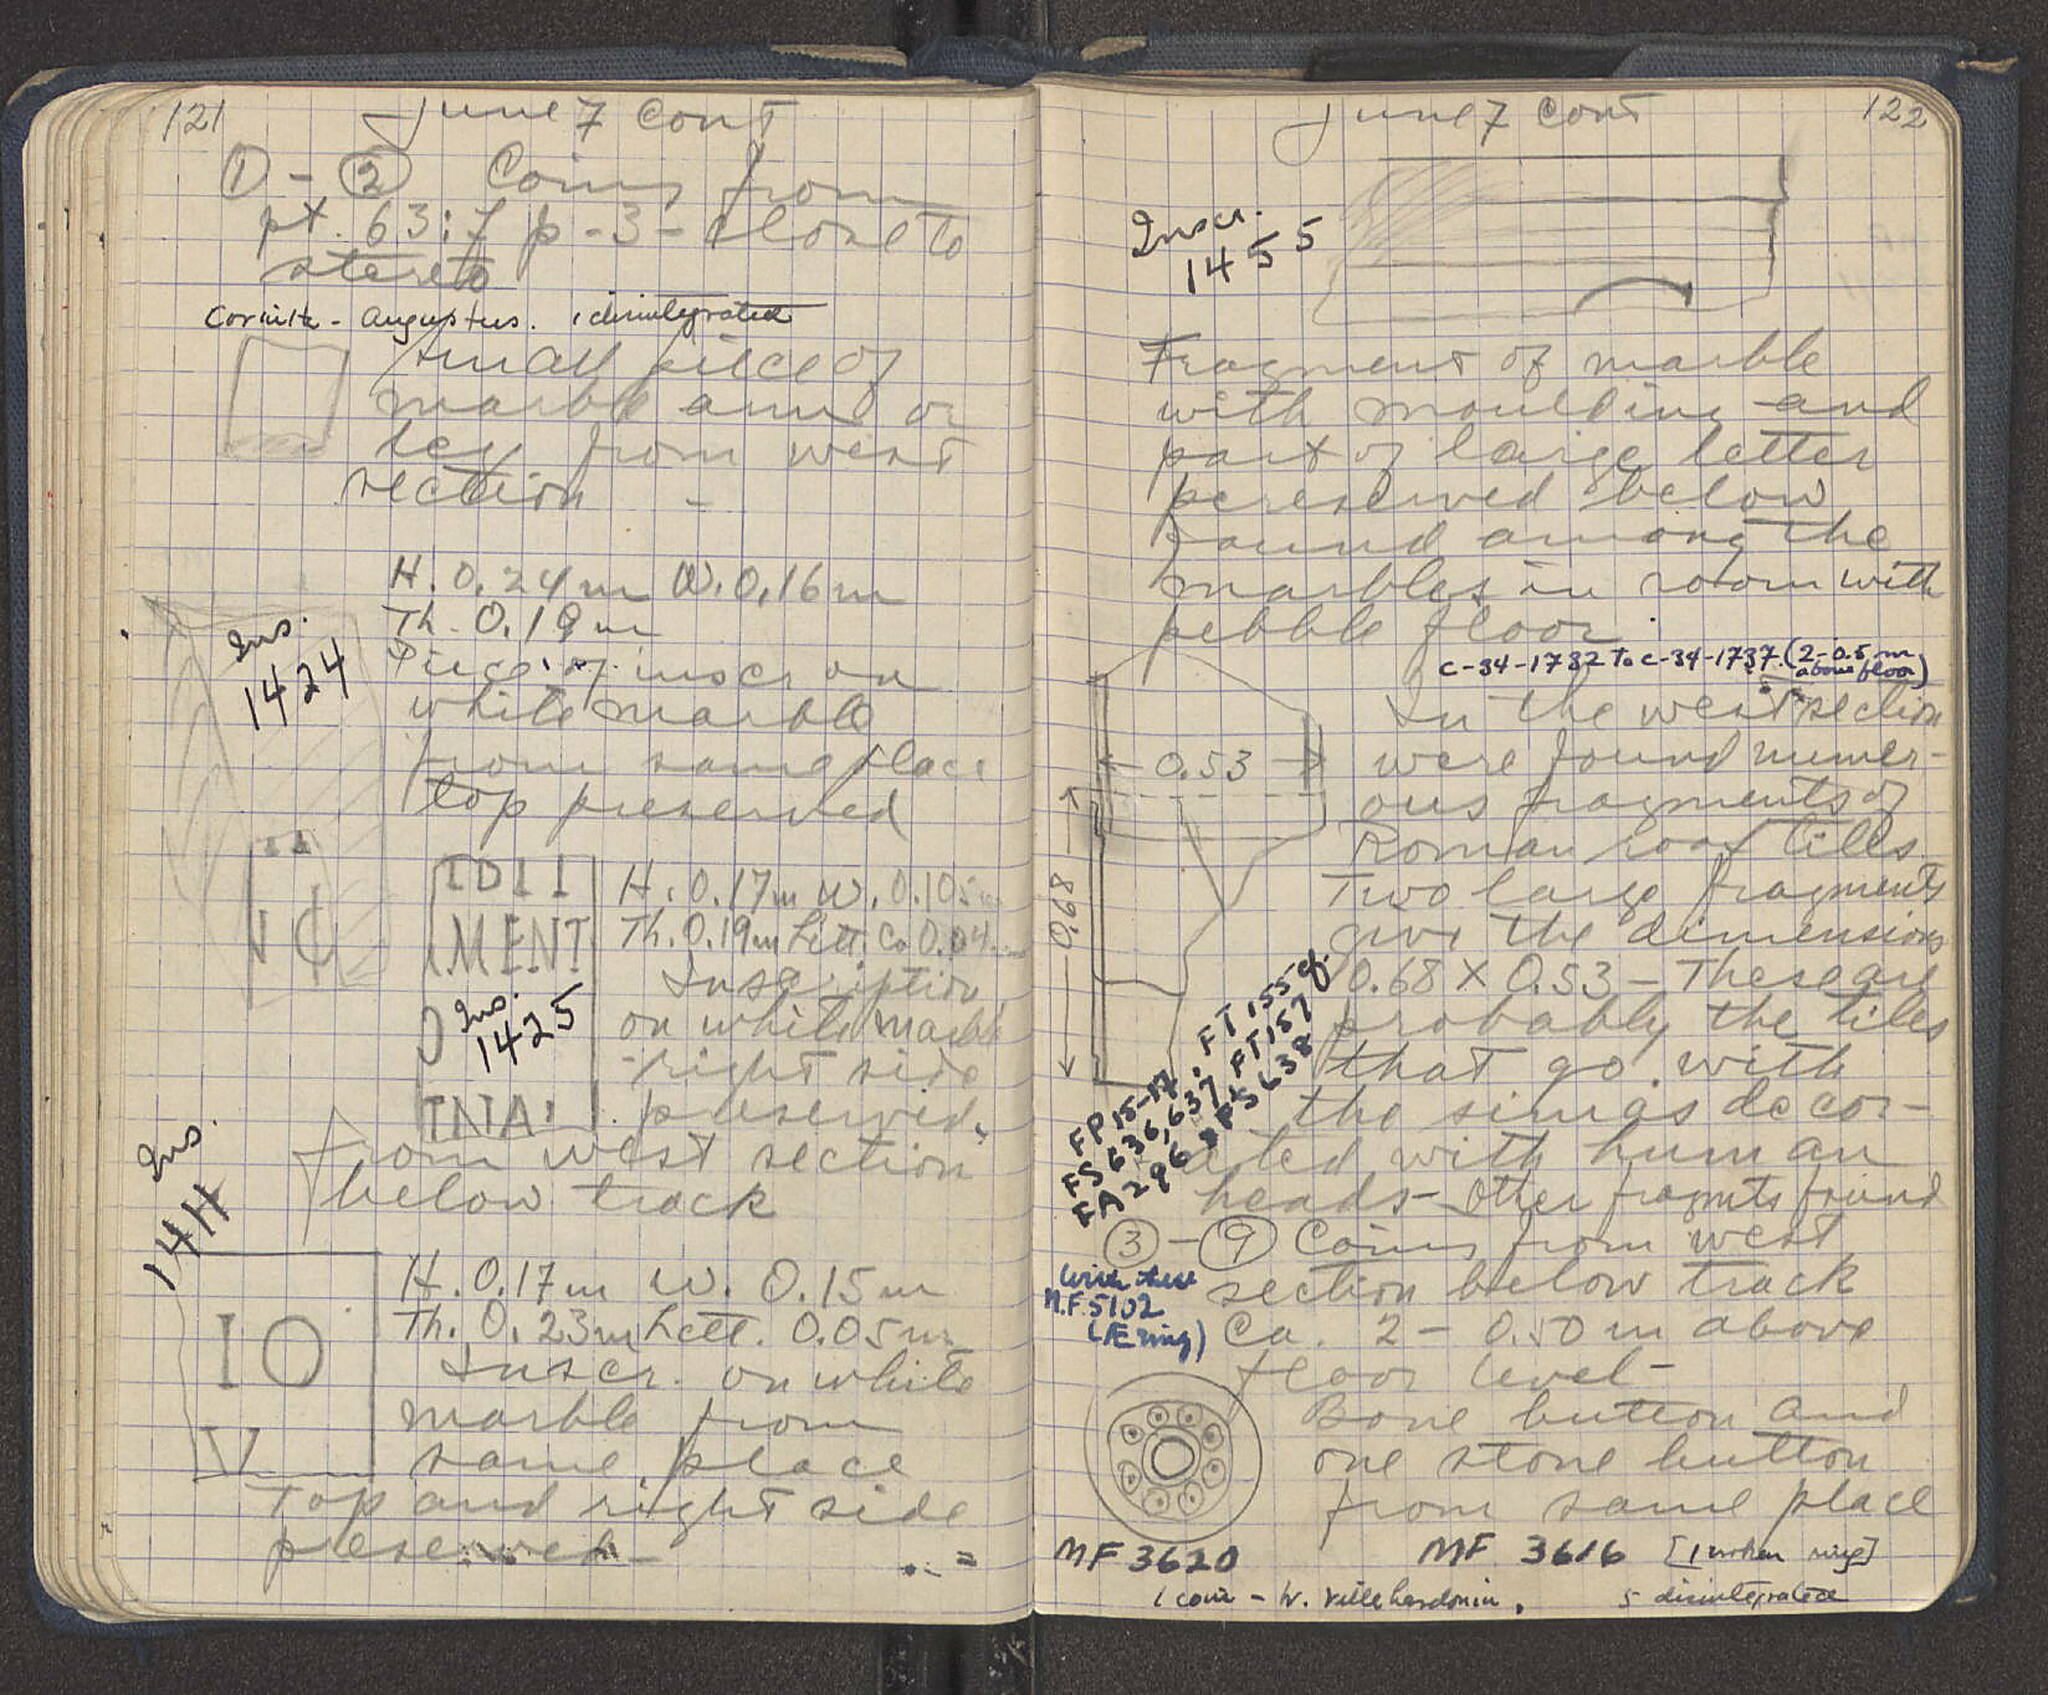 121
June 7 cont
① - ② Coins from
pt. 63:7 p - 3 - close to
stereo
Corinth - Augustus. 1 disintegrated
Small piece of
marble arm or
leg from west
section -
H. 0.24m W. 0.16m
Th. 0.19m
Piece of inscr on
white marble
from same place
top preserved
Ins.
1424
IDII
MENT
Ins.
1425
TNAI
H. 0.17m W. 0.105m
Th. 0.19m Lett. Ca 0.04m
Inscription
on white marble
right side
preserved.
from west section
below track
Ins.
1411
IO
V
H. 0.17m W. 0.15m
Th. 0.23m Lett. 0.05m
Inscr. on white
marble from
same place
Top and right side
preserved -
June 7 cont
122
Inscr.
1455
Fragment of marble
with moulding and
part of large letter
preserved below
found among the
marbles in room with
pebble floor.
C-34-1732 to C-34-1737. (2-0.5 m
above floor)
In the west section
were found numer-
ous fragments of
Roman roof tiles
Two large fragments
give the dimensions
0.68 X 0.53 - These are
probably the tiles
that go with
the simas decor-
ated with human
heads - Other fragmts found
0.53
0.68
FP 15-17, FT 155 cf.
FS 636, 637 FT 157
FA 296 FS 638
③ - ⑨ Coins from west
section below track
Ca. 2 - 0.50 m above
floor level -
with these
M.F. 5102
(Æ ring)
Bone button and
one stone button
from same place
MF 3620
MF 3616 [1 broken ring]
1 coin - W. Villehardouin, 5 disintegrated